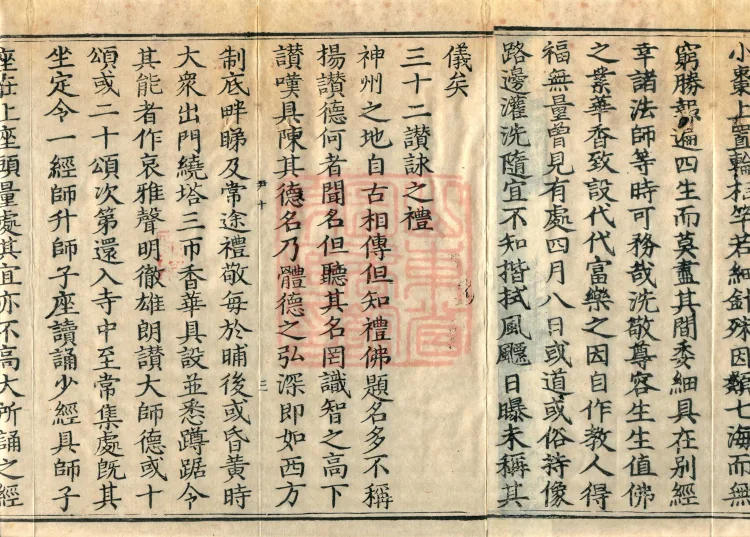 小棗上置輪相竿若細針殊因類七海而無
窮勝報遍四生而莫盡其間委細具在別經
幸諸法師等時可務哉洗敬尊容生生值佛
之業華香致設代代富樂之因自作教人得
福無量曾見有處四月八日或道或俗持像
路邊灌洗隨宜不知揩拭風飈日曝未稱其
儀矣
三十二讃詠之禮
神州之地自古相傳但知禮佛題名多不稱
揚讃德何者聞名但聽其名罔識智之高下
讃嘆具陳其德名乃體德之弘深即如西方
制底畔睇及常途禮敬每於晡後或昏黃時
大衆出門繞塔三帀香華具設並悉蹲踞令
其能者作哀雅聲明徹雄朗讃大師德或十
頌或二十頌次第還入寺中至常集處旣其
坐定令一經師升師子座讀誦少經具師子
座在上座頭量處其宜亦不高大所誦之經